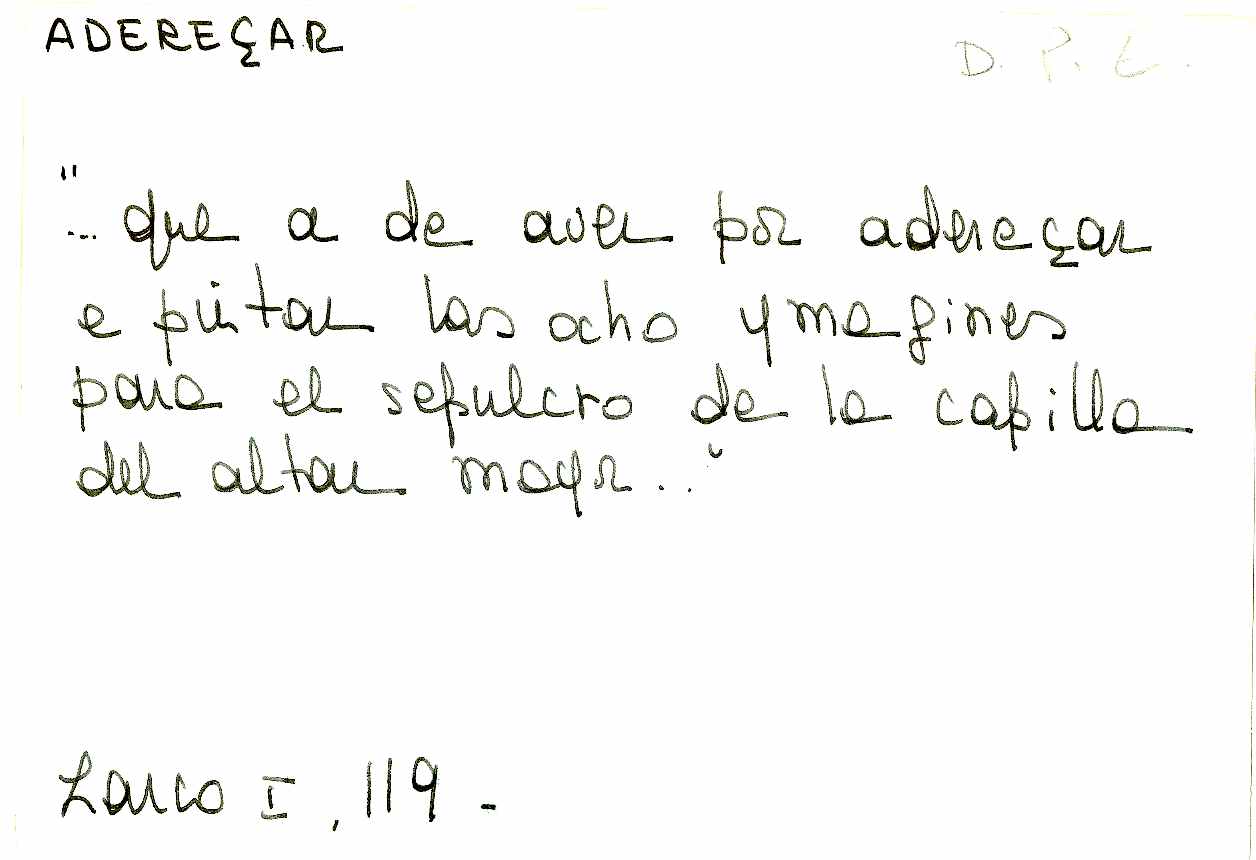 ADEREÇAR
D. P. E.
"... que a de aver por adereçar
e pintar las ocho ymagines
para el sepulcro de la capilla
del altar mayor..."
Larco I, 119 -